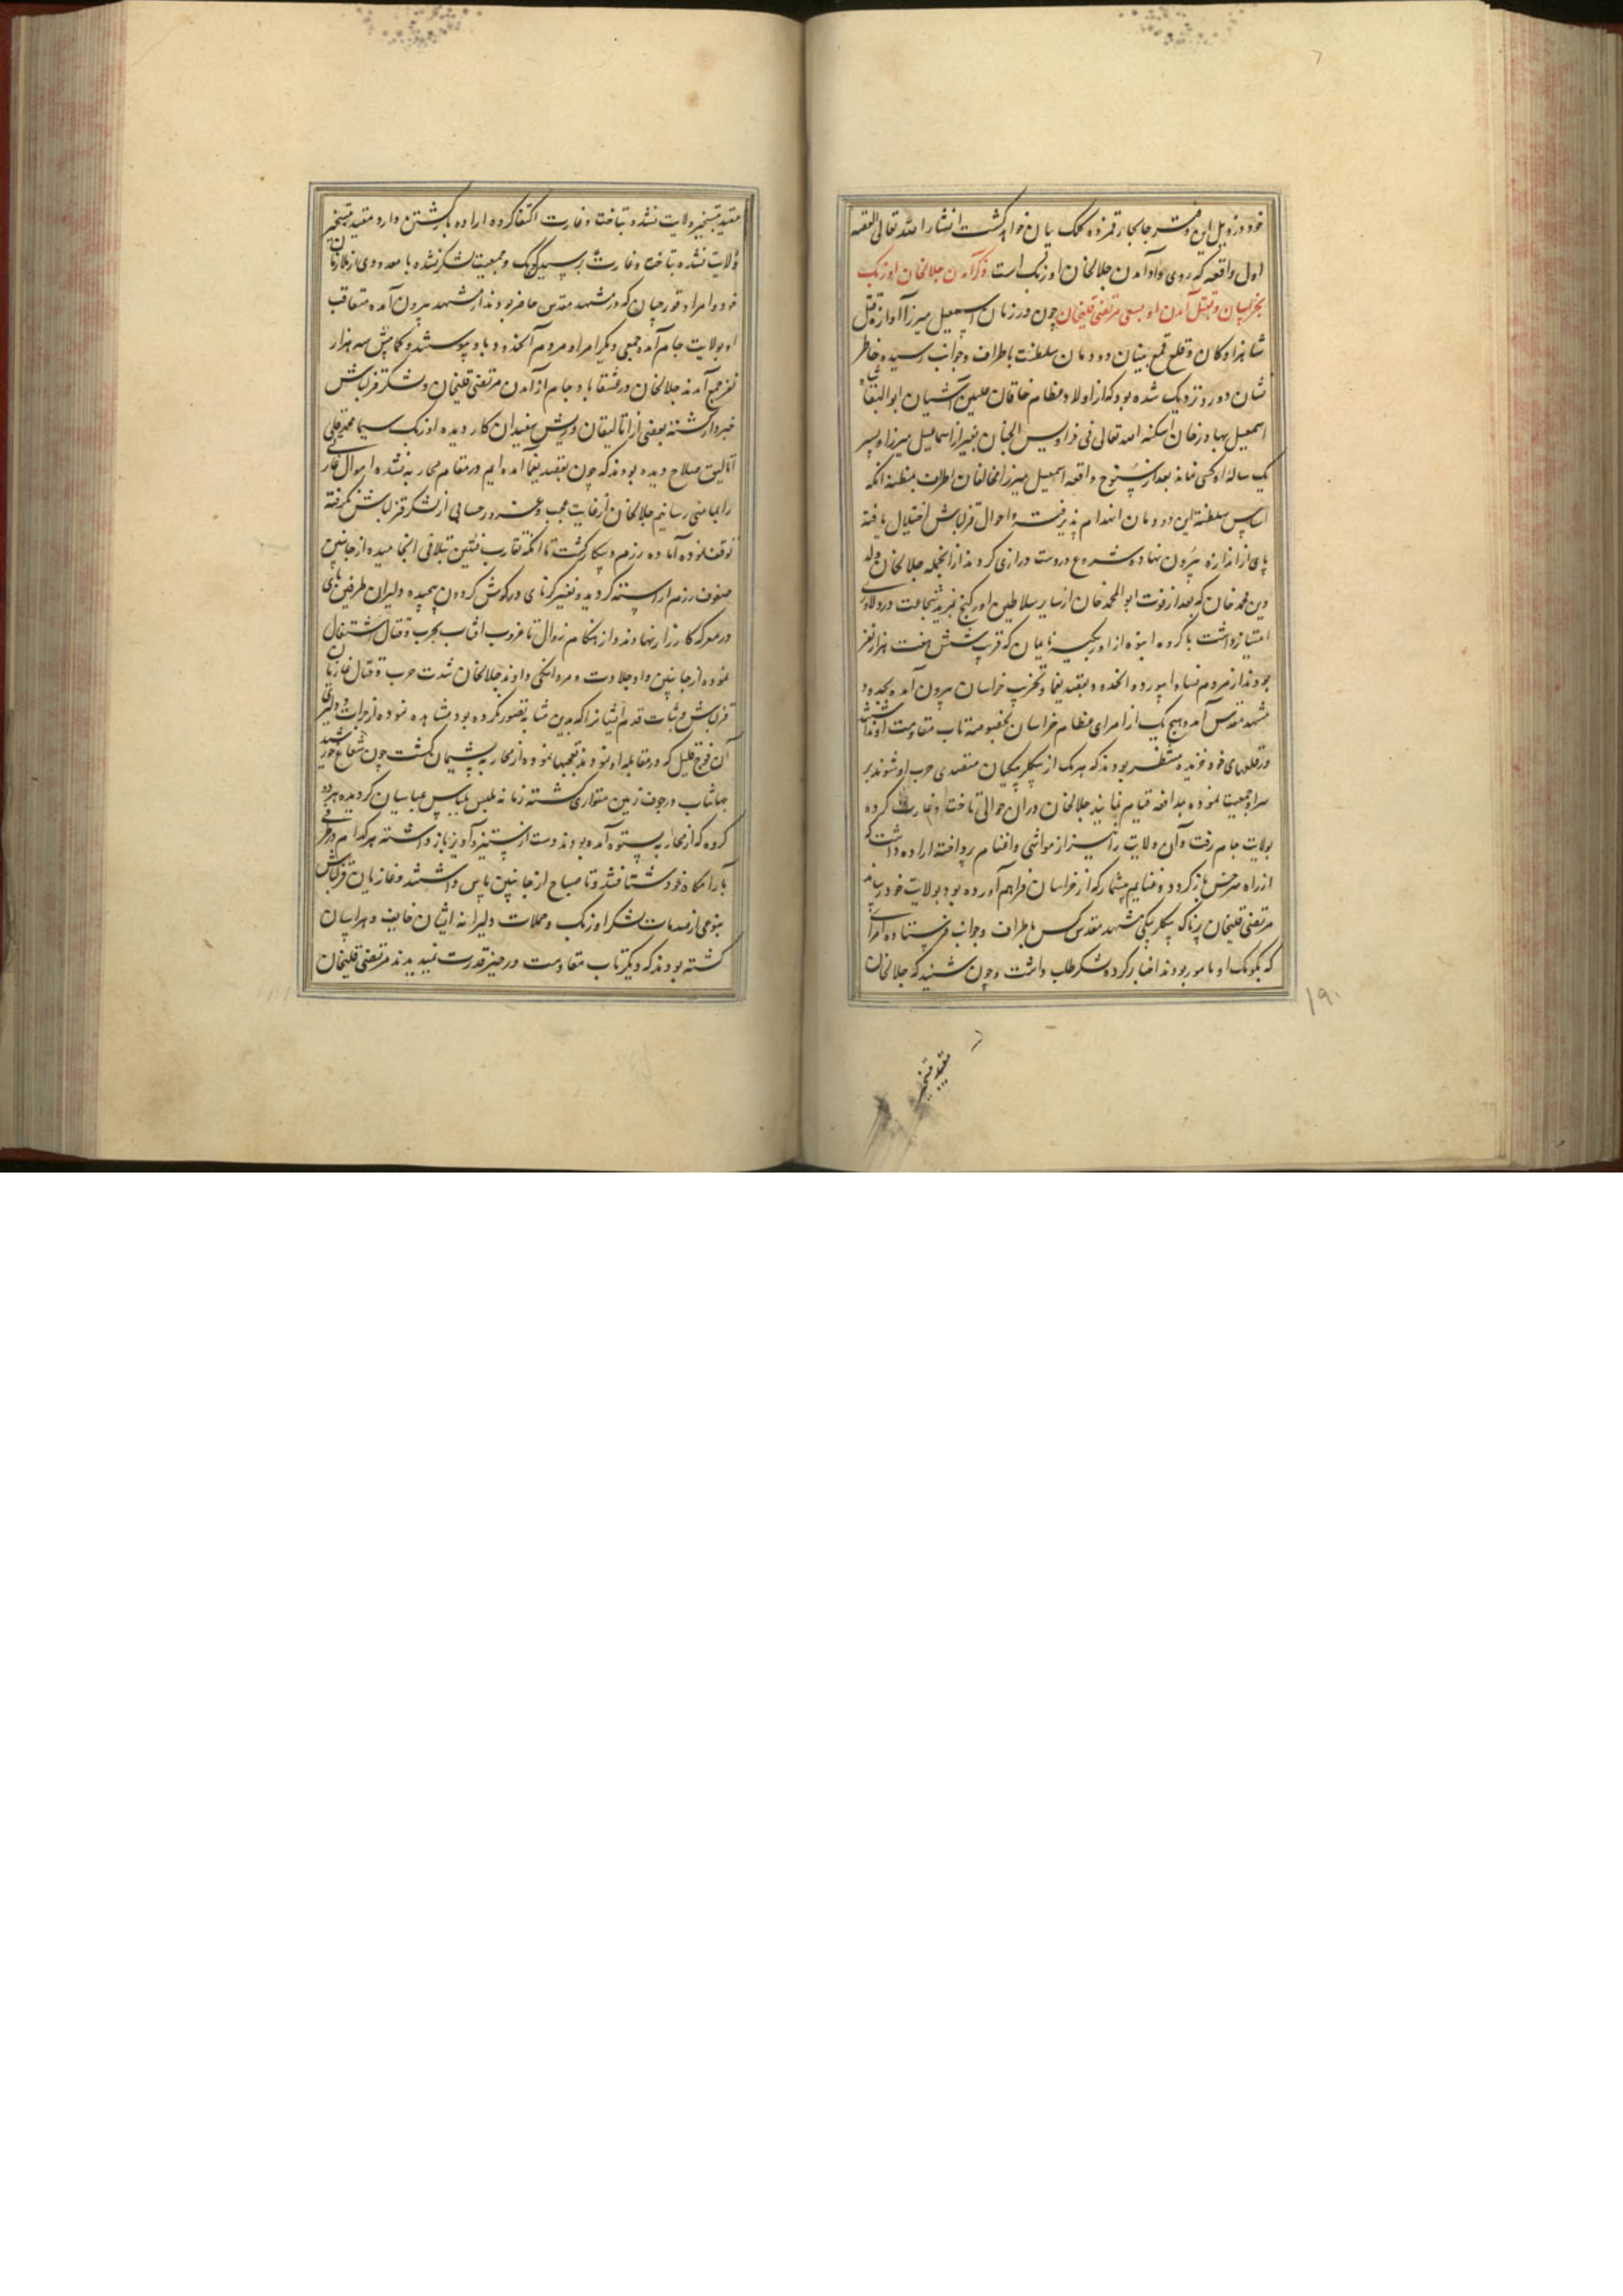 خود در ذیل این دفتر جابجا رقمزده کلک بیان خواهد گشت انشاء الله تعالی القصه
اول واقعه که روی داد آمدن جلالخان اوزبک است ذکر آمدن جلالخان اوزبک
بخراسان و بقتل آمدن او بسعی مرتضی قلیخان چون در زمان اسمعیل میرزا آوازه قتل
شاهزادکان و قلع و قمع بنیان دودمان سلطنت باطراف و جوانب رسیده خاطر
نشان دور و نزدیک شده بود که از اولاد عظام خاقان علیین آشیان ابو البقا شاه
اسمعیل بهادرخان اسکنه الله تعالی فی فرادیس الجنان بغیر از اسماعیل میرزا و پسر
یک ساله او کسی نمانده بعد از سنوح واقعه اسمعیل میرزا مخالفان اطراف بمظنه انکه
اساس سلطنة این دودمان انهدام پذیرفته و احوال قزلباش اختلال یافته
پای از اندازه بیرون نهاده شروع در دست درازی کردند از انجمله جلالخان ولد
دین محمد خان که بعد از فوت ابو المحمد خان از سایر سلاطین اورکنج بمزید شجاعت و دلاوری
امتیاز داشت با کروه انبوه از اوزبکیه نایمان که قریب شش هفت هزار نفر
بودند از مردم نسا و ابیورد و الخدود بقصد یغما و تخریب خراسان بیرون آمده بحدود
مشهد مقدس آمد و هیچ یک از امرای عظام خراسان بخصوصه تاب مقاومت او نداشتند
در قلعهای خود خزیده منتظر بودند که هر یک از بیکلربیکیان متصدی حرب او شوند بر
سر او جمعیت نموده بمدافعه قیام نمایند جلالخان در ان حوالی تاخت و غارت کرده
بولایت جام رفت و آن ولایت را نیز از مواشی و اغنام پرداخته اراده داشت که
از راه سرخس باز کردد و غنایم بیشمار که از خراسان فراهم آورده بود بولایت خود رساند
مرتضی قلیخان پرناک بیکلربیکی مشهد مقدس کس باطراف و جوانب فرستاده امرائی
که بکومک او مامور بودند اخبار کرده لشکر طلب داشت و چون شنید که جلالخان
مقید بتسخیر
۱۹۰
مقید بتسخیر ولایت نشده بتاخت و غارت اکتفا کرده اراده بازکشتن دارد مقید بتسخیر
ولایت نشده بتاخت و غارت رسید کومک و جمعیت لشکر نشده با معدودی از ملازمان
خود و امرا و قورچیان که در مشهد مقدس حاضر بودند از مشهد بیرون آمده متعاقب
او بولایت جام آمد و جمعی دیکر امرا و مردم آنحدود باو پیوستند و کمابیش سه هزار
نفر جمع آمدند جلالخان در جام از آمدن مرتضی قلیخان و لشکر قزلباش
خبردار کشته بعضی از اتالیقان و ریش سفیدان کار دیده اوزبک سیما محمد قلی
اتالیق صلاح دیده بودند که چون بقصد یغما آمده ایم در مقام محاربه نشده اموال غارتی
را بمامنی رسانیم جلالخان از غایت عجب و غرور حسابی از لشکر قزلباش نکرفته
توقف نموده آماده رزم و پیکار کشت تا انکه تقارب فئتین بتلاقی انجامیده از جانبین
صفوف رزم اراسته کردید و نفیر کرنای در کوش کردون پیچیده دلیران طرفین پای
در معرکه کارزار نهادند و از هنکام زوال تا غروب افتاب بحرب و قتال اشتغال
نموده از جانبین داد جلادت و مردانکی دادند جلالخان شدت حرب و قتال غازیان
قزلباش و ثبات قدم ایشانرا که بدین مثابه تصور نکرده بود مشاهده نموده از جرات و دلیری
آن فوج قلیل که در مقابله او بودند تعجبها نموده از محاربه پشیمان کشت چون شعاع خورشید
جهانتاب در جوف زمین متواری کشته زمانه ملبس بلباس عباسیان کردیده هر دو
کروه که از محاربه بستوه آمده بودند دست از ستیز و آویز باز داشته هر کدام در طرفی
بآرامکاه خود شتافتند و تا صباح از جانبین پاس داشتند و غازیان قزلباش
بنوعی از صدمات لشکر اوزبک و حملات دلیرانه ایشان خایف و هراسان
کشته بودند که دیکر تاب مقاومت در حیز قدرت نمیدیدند مرتضی قلیخان